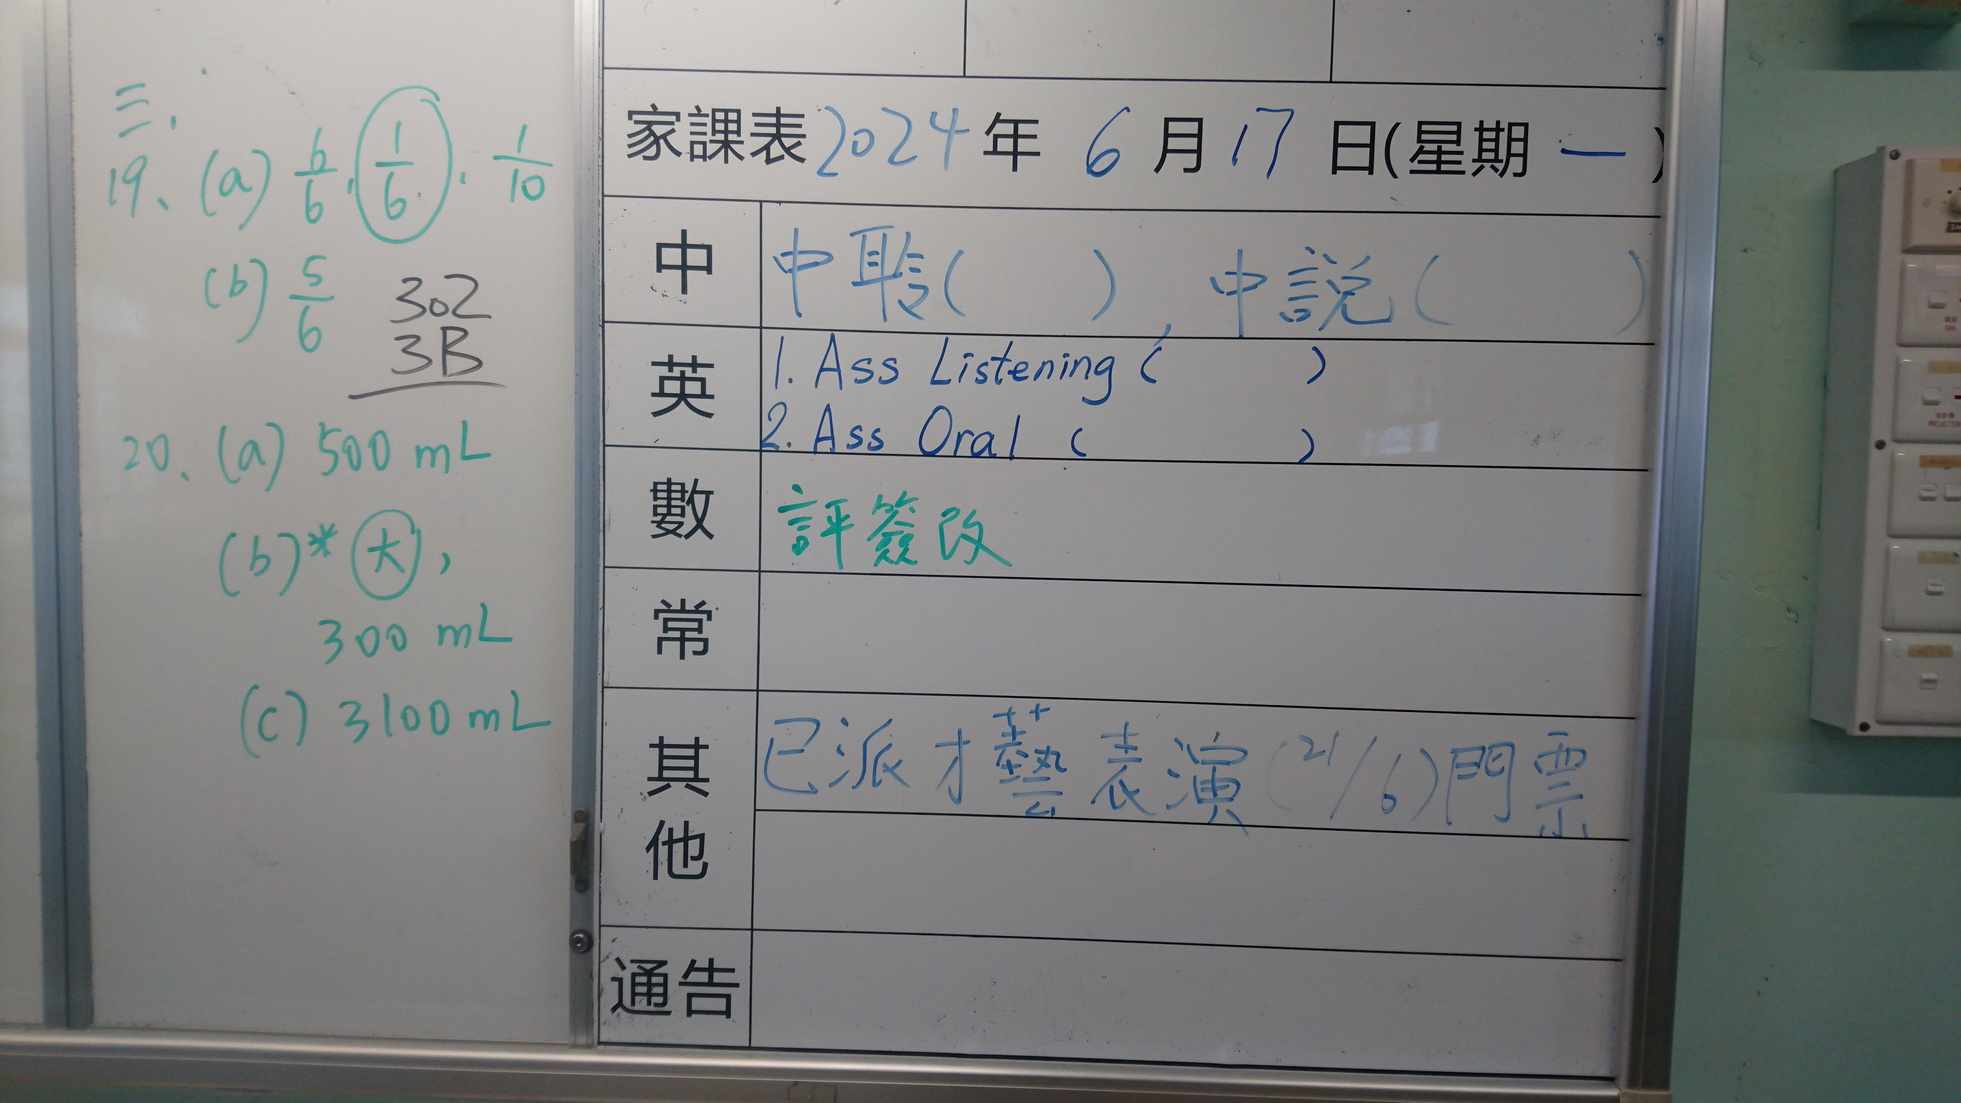 三.
19、(a) 6/6, 1/6, 1/10
(b) 5/6
302
3B
20、(a) 500 mL
(b)* 大,
300 mL
(c) 3100 mL
家課表 2024 年 6 月 17 日(星期 一 )
中 中聆( ), 中說( )
英 1. Ass Listening ( )
2. Ass Oral ( )
數 評簽改
常
其他 已派才藝表演(21/6)門票
通告